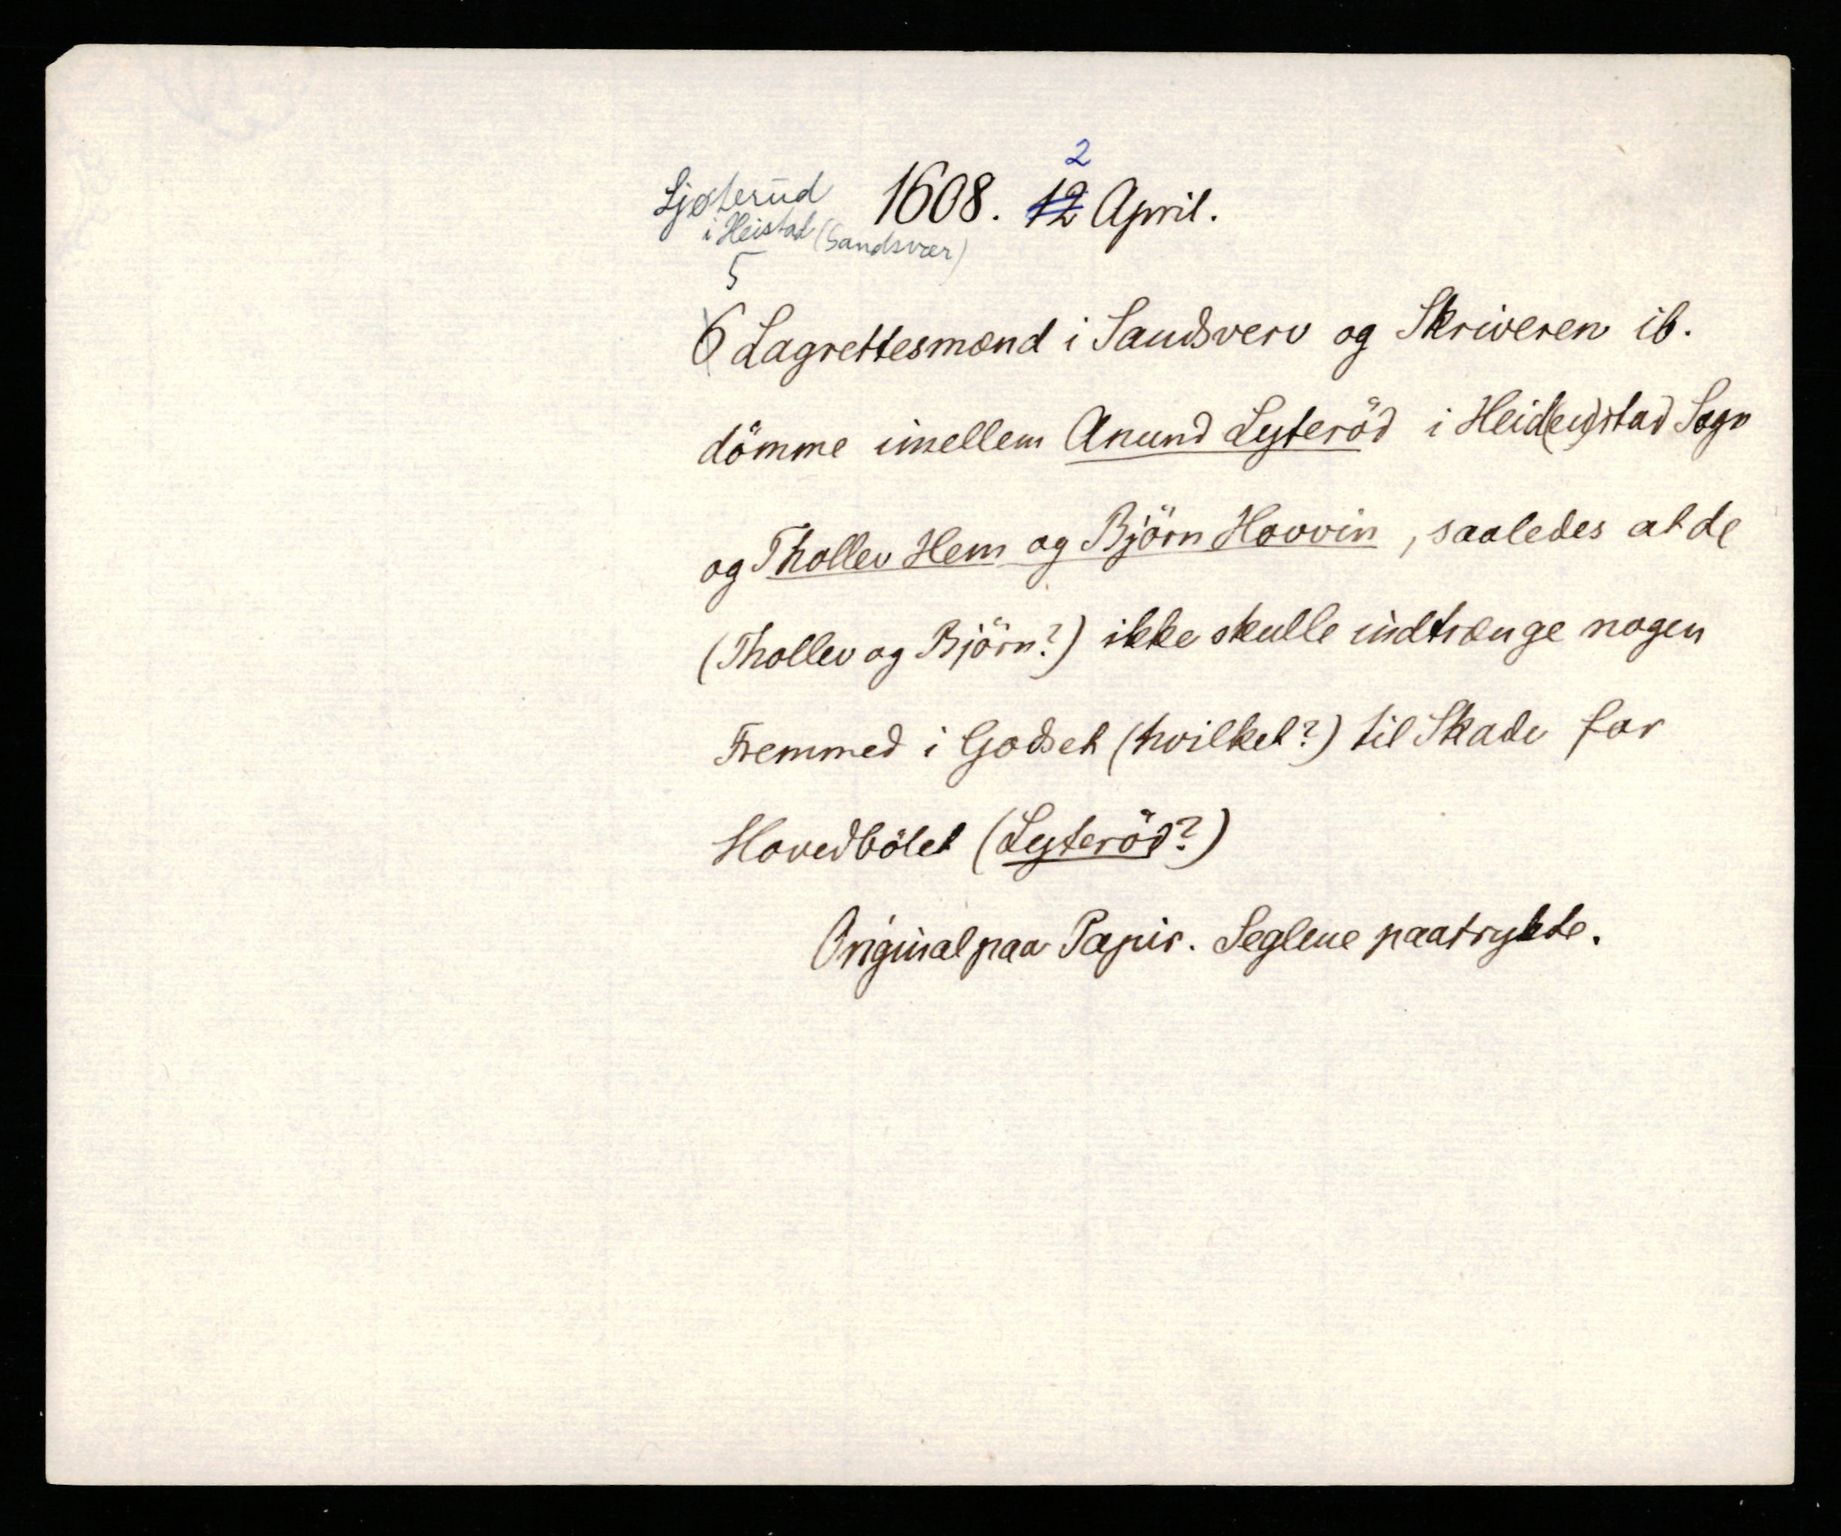 2
Ljøterud 1608. 12 April.
i Heistad (Sandsvær)
5
6 Lagrettesmænd i Sandsverv og Skriveren ib.
dömme imellem Anund Lyteröd i Heid(en)stad Sogn
og Thollev Hem og Björn Hovvin, saaledes at de
(Thollev og Björn?) ikke skulle indtrænge nogen
Fremmed i Godset (hvilket?) til Skade for
Hovedbölet (Lyteröd?)
Original paa Papir. Seglene paatrykte.